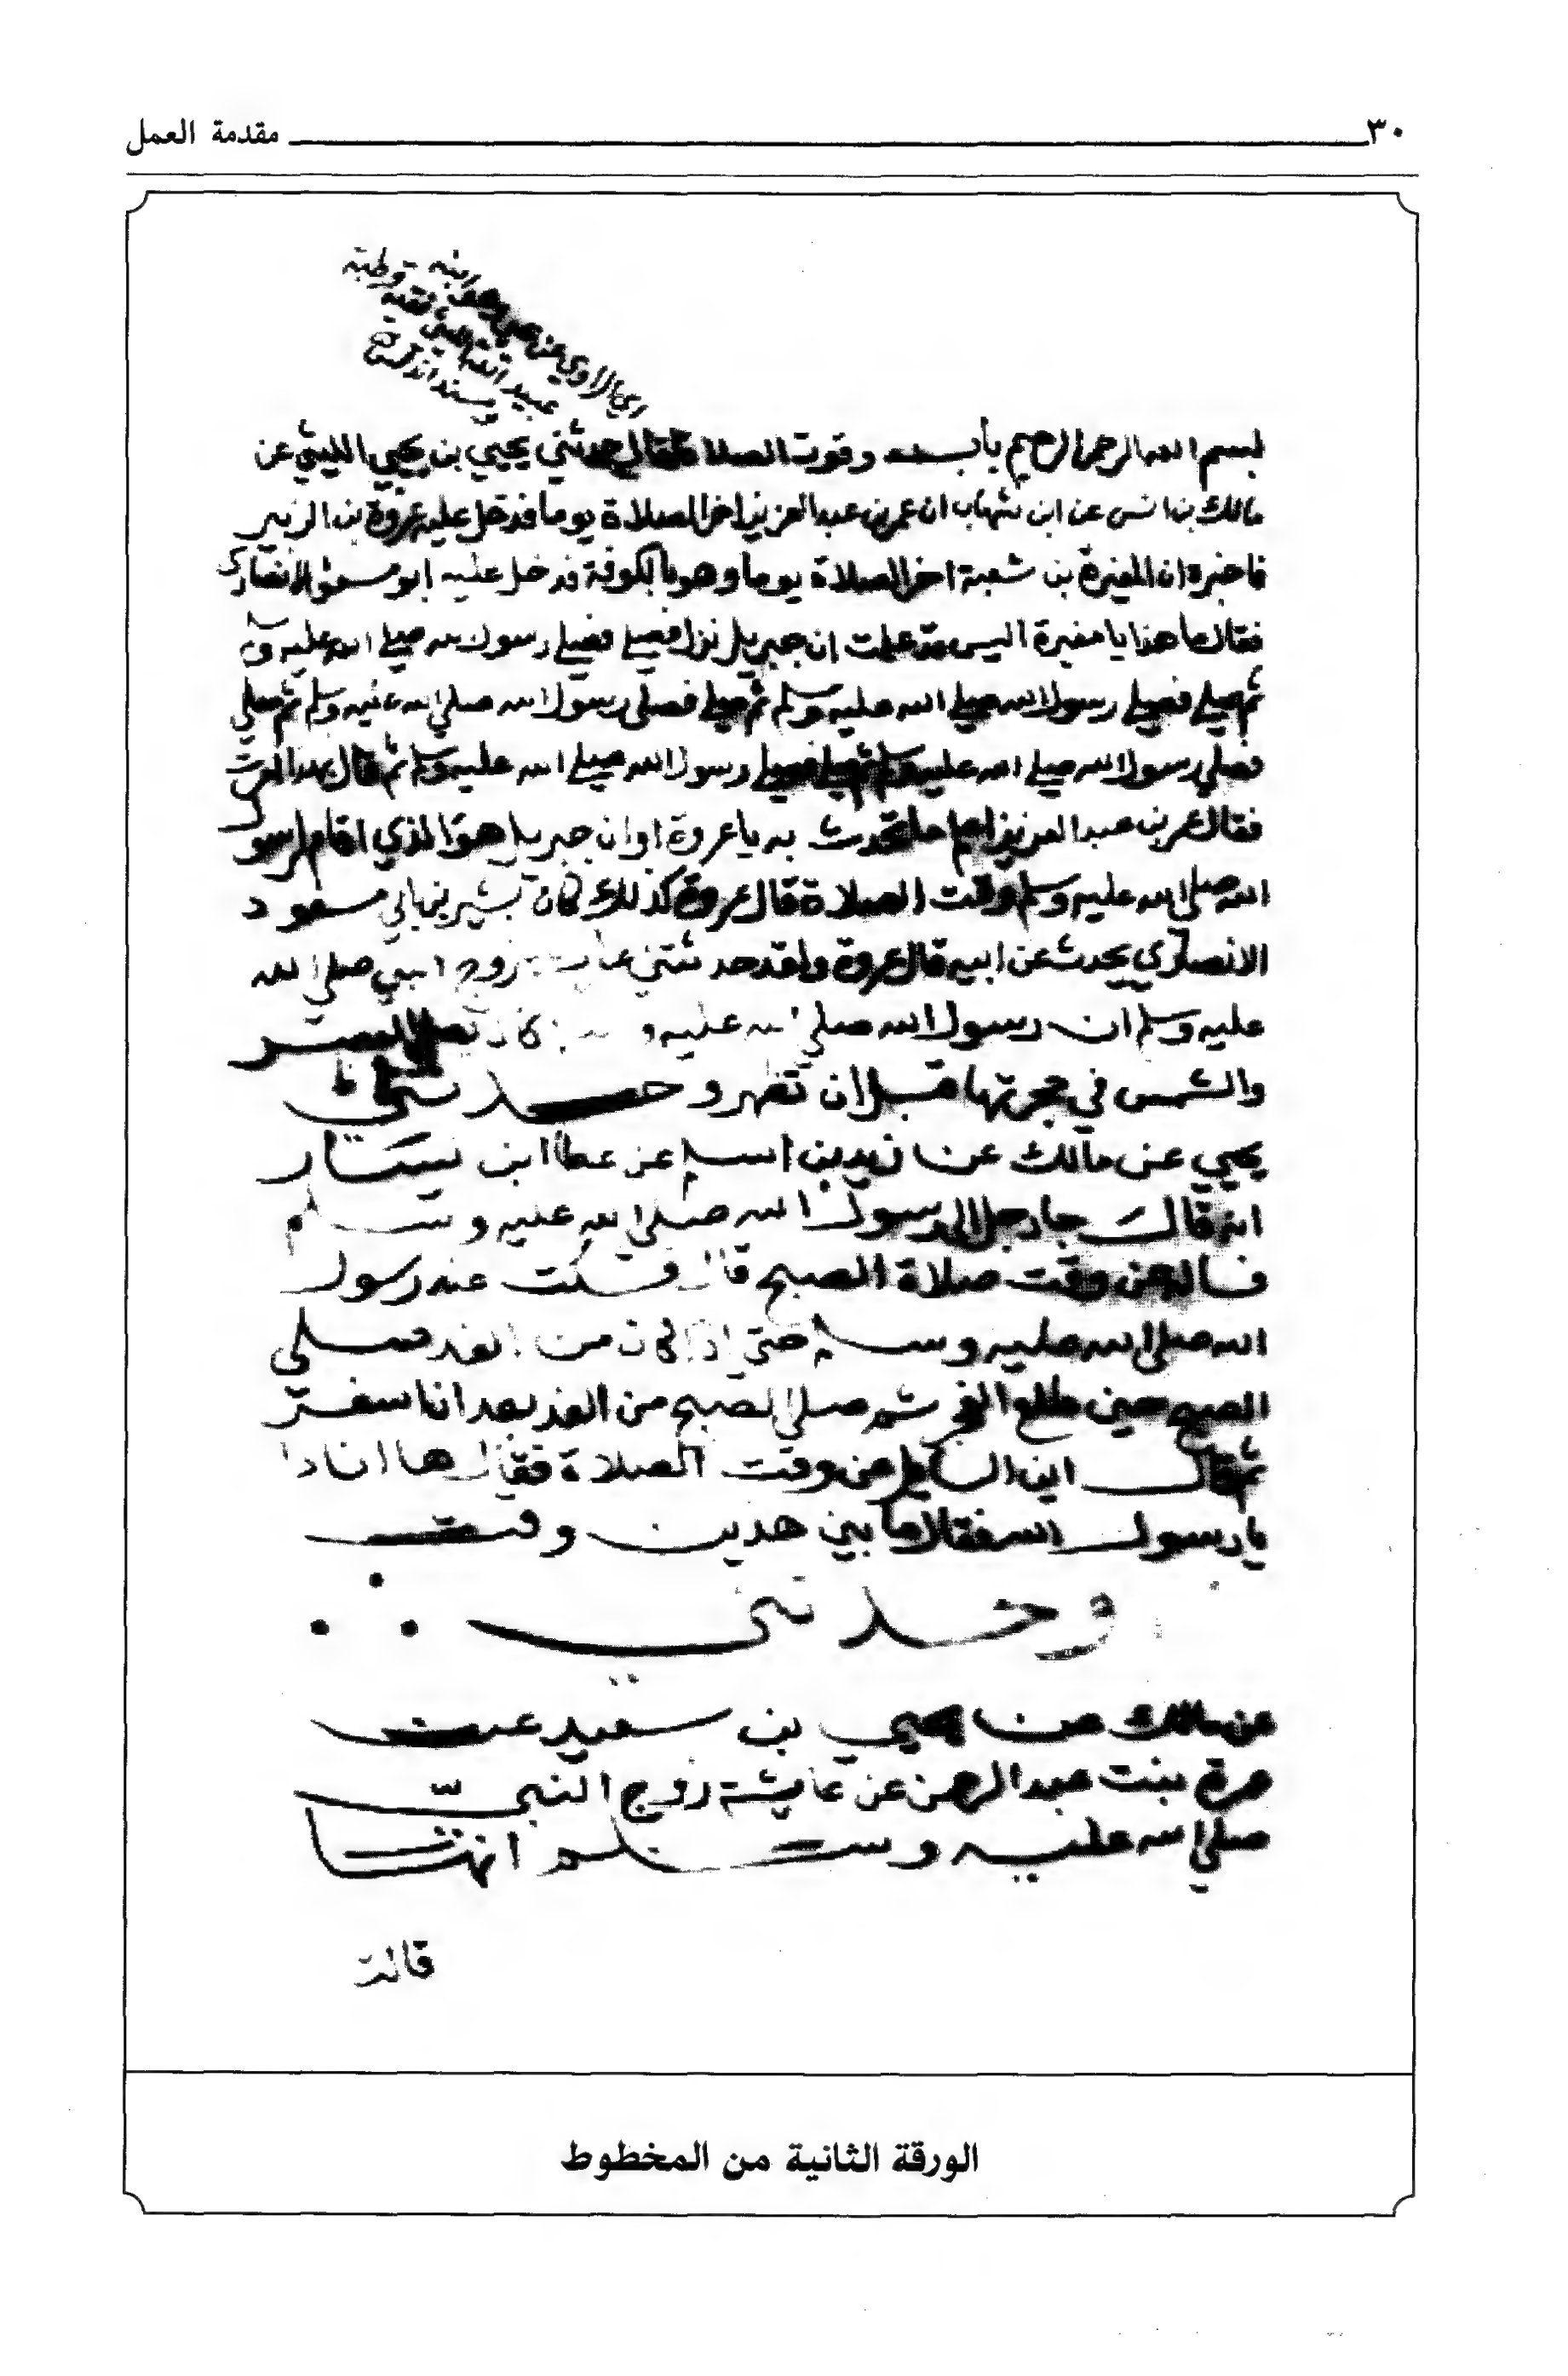 ٣٠ مقدمة العمل
اي الراوي عن ابنه
عبيد الله فقيه قرطبة
ومسند
بسم الله الرحمن الرحيم باب وقوت الصلاة قال حدثني يحيي بن يحيي الليثي عن
مالك بن انس عن ابن شهاب ان عمر بن عبد العزيز اخر الصلاة يوما فدخل عليه عروة بن الزبير
فاخبره ان المغيرة بن شعبة اخر الصلاة يوما وهو بالكوفة فدخل عليه ابو مسعود الانصاري
فقال ما هذا يا مغيرة اليس قد علمت ان جبريل نزل فصلي فصلي رسول الله صلي الله عليه و
ثم صلي فصلي رسول الله صلي الله عليه وسلم ثم صلي فصلي رسول الله صلي الله عليه وسلم ثم صلي
فصلي رسول الله صلي الله عليه وسلم ثم صلي فصلي رسول الله صلي الله عليه وسلم ثم قال بهذا امرت
فقال عمر بن عبد العزيز اعلم ما تحدث به يا عروة او ان جبريل هو الذي اقام لرسول
الله صلي الله عليه وسلم وقت الصلاة قال عروة كذلك كان بشير بن ابي مسعود
الانصاري يحدث عن ابيه قال عروة ولقد حدثتني زوج النبي صلي الله
عليه وسلم ان رسول الله صلي الله عليه و كان
والشمس في حجرتها قبل ان تظهر وحدثني
يحيي عن مالك عن زيد بن اسلم عن عطا ابن يسار
انه قال جا رجل الي رسول الله صلي الله عليه وسلم
فساله عن وقت صلاة الصبح قال فسكت عنه رسول
الله صلي الله عليه وسلم حتي اذا كان من الغد صلي
الصبح حين طلع الفجر ثم صلي الصبح من الغد بعد ان اسفر
ثم قال اين السايل عن وقت الصلاة فقال ها انا ذا
يا رسول الله فقال ما بين هذين وقت
وحدثني
عن مالك عن يحيي بن سعيد عن
عمرة بنت عبد الرحمن عن عايشة زوج النبي
صلي الله عليه وسلم انها
قالت
الورقة الثانية من المخطوط